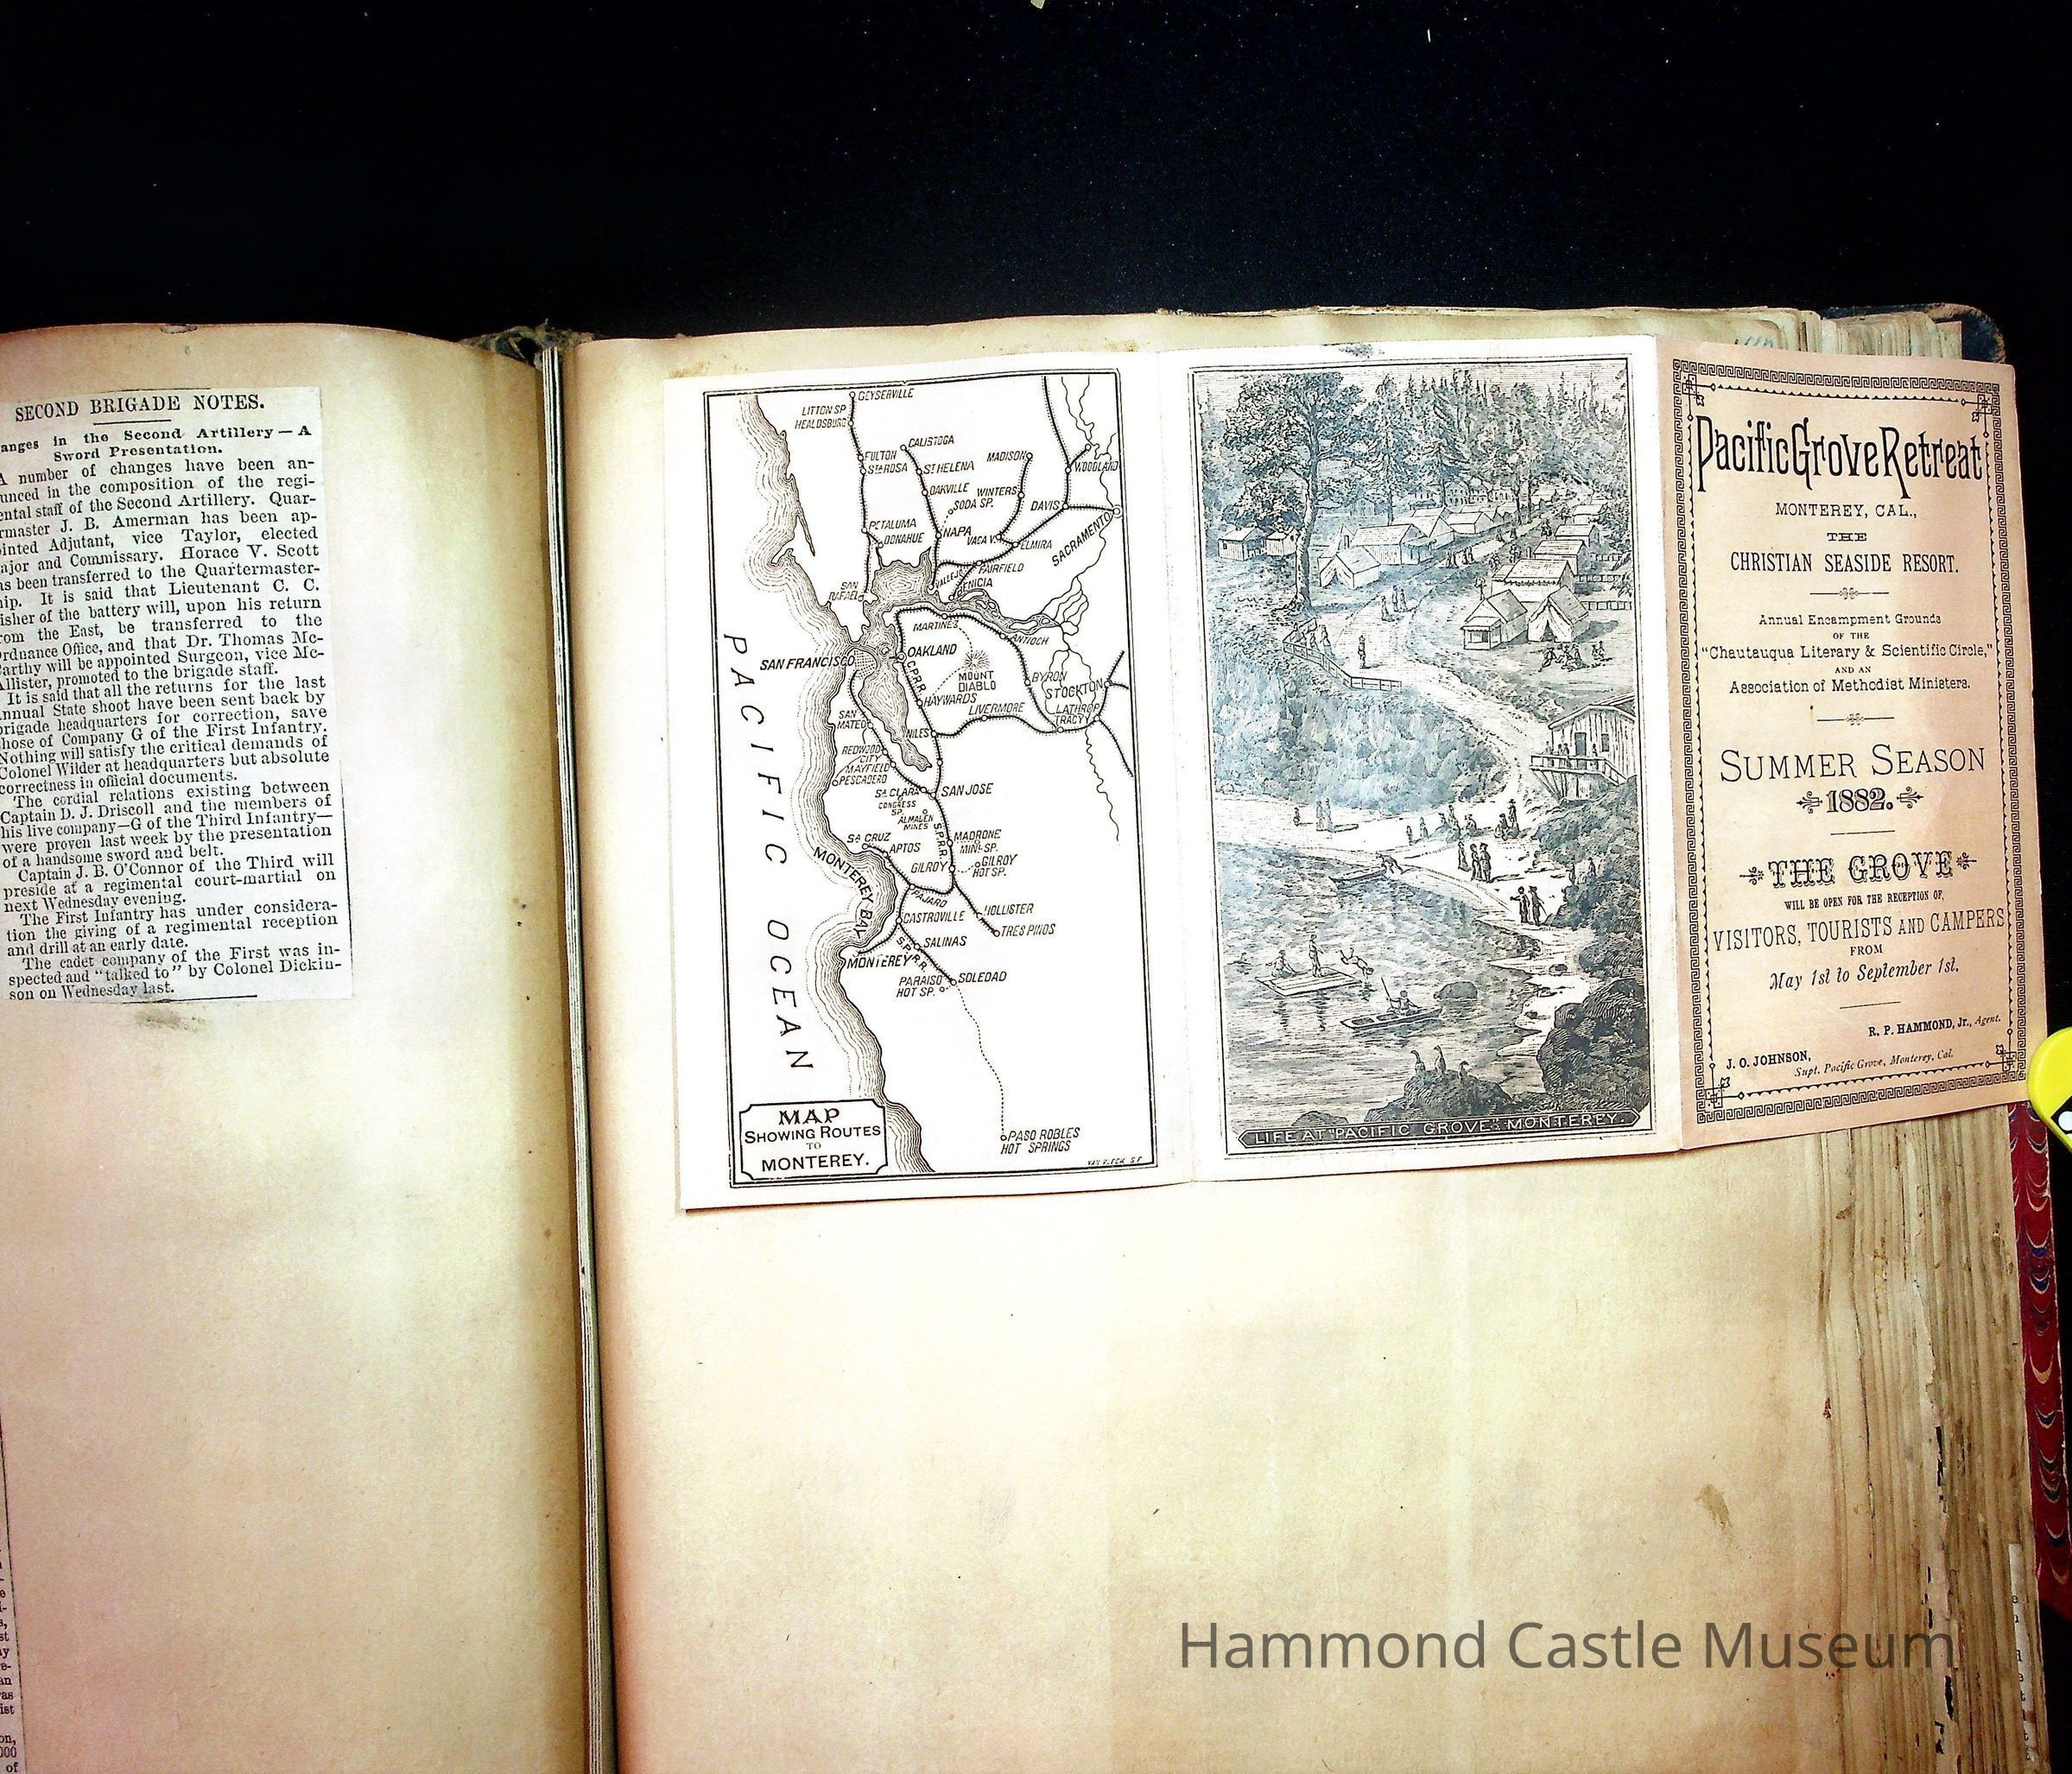 SECOND BRIGADE NOTES.
anges in the Second Artillery — A
Sword Presentation.
A number of changes have been an-
unced in the composition of the regi-
ental staff of the Second Artillery. Quar-
rmaster J. B. Amerman has been ap-
ointed Adjutant, vice Taylor, elected
ajor and Commissary. Horace V. Scott
as been transferred to the Quartermaster-
hip. It is said that Lieutenant C. C.
isher of the battery will, upon his return
rom the East, be transferred to the
Ordnance Office, and that Dr. Thomas Mc-
Carthy will be appointed Surgeon, vice Mc-
Allister, promoted to the brigade staff.
It is said that all the returns for the last
annual State shoot have been sent back by
brigade headquarters for correction, save
those of Company G of the First Infantry.
Nothing will satisfy the critical demands of
Colonel Wilder at headquarters but absolute
correctness in official documents.
The cordial relations existing between
Captain D. J. Driscoll and the members of
his live company—G of the Third Infantry—
were proven last week by the presentation
of a handsome sword and belt.
Captain J. B. O'Connor of the Third will
preside at a regimental court-martial on
next Wednesday evening.
The First Infantry has under considera-
tion the giving of a regimental reception
and drill at an early date.
The cadet company of the First was in-
spected and "talked to" by Colonel Dickin-
son on Wednesday last.
GEYSERVILLE
LITTON SP
HEALDSBURG
CALISTOGA
FULTON
STA ROSA
ST HELENA
MADISON
WOODLAND
OAKVILLE
WINTERS
SODA SP.
DAVIS
PETALUMA
DONAHUE
NAPA
VACA V.
ELMIRA
SACRAMENTO
VALLEJO
FAIRFIELD
BENICIA
SAN
RAFAEL
MARTINEZ
ANTIOCH
SAN FRANCISCO
OAKLAND
C.P.R.R.
MOUNT
DIABLO
BYRON
STOCKTON
HAYWARDS
LIVERMORE
LATHROP
TRACY
SAN
MATEO
NILES
REDWOOD
CITY
MAYFIELD
PESCADERO
STA CLARA
SAN JOSE
CONGRESS
SP.
ALMADEN
MINES
S.P.R.R.
STA CRUZ
APTOS
MADRONE
MINL SP.
GILROY
GILROY
HOT SP.
MONTEREY BAY
PAJARO
CASTROVILLE
HOLLISTER
TRES PINOS
SALINAS
S.P.R.R.
MONTEREY
PARAISO
HOT SP.
SOLEDAD
PACIFIC OCEAN
PASO ROBLES
HOT SPRINGS
MAP
SHOWING ROUTES
TO
MONTEREY.
VAN VLECK S.F.
LIFE AT PACIFIC GROVE: MONTEREY.
Pacific Grove Retreat
MONTEREY, CAL.,
THE
CHRISTIAN SEASIDE RESORT.
Annual Encampment Grounds
OF THE
"Chautauqua Literary & Scientific Circle,"
AND AN
Association of Methodist Ministers.
SUMMER SEASON
1882.
THE GROVE
WILL BE OPEN FOR THE RECEPTION OF,
VISITORS, TOURISTS AND CAMPERS
FROM
May 1st to September 1st.
R. P. HAMMOND, Jr., Agent.
J. O. JOHNSON,
Supt. Pacific Grove, Monterey, Cal.
Hammond Castle Museum